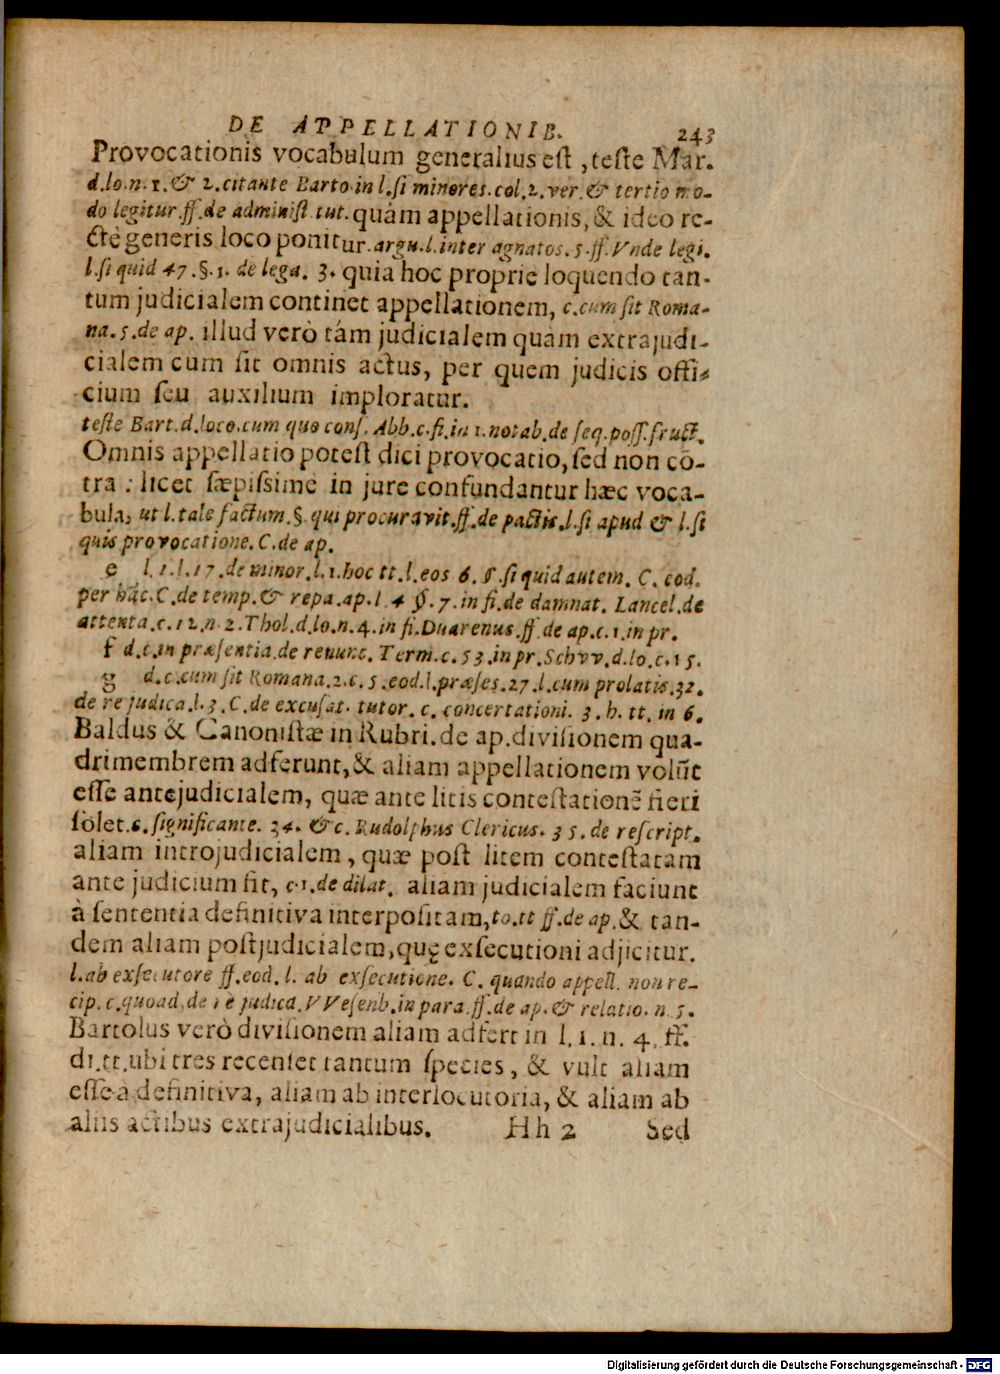 DE APPELLATIONIB. 243
Provocationis vocabulum generalius est, teste Mar.
d.lo.n.1.& 2.citante Barto.in l.si minores.col.2.ver.& tertio mo-
do legitur.ff.de administ.tut.quàm appellationis, & ideo re-
ctè generis loco ponitur.argu.l.inter agnatos.5.ff.Vnde legi.
l.si quid 47.§.1.de lega.3.quia hoc proprie loquendo tan-
tum judicialem continet appellationem, c.cum sit Roma-
na.5.de ap.illud verò tàm judicialem quàm extrajudi-
cialem cum sit omnis actus, per quem judicis offi-
cium seu auxilium imploratur.
teste Bart.d.loco.cum quo cons.Abb.c.fi.in 1.notab.de seq.poss.fruct.
Omnis appellatio potest dici provocatio, sed non cō-
tra: licet sæpissime in jure confundantur hæc voca-
bula, ut l.tale factum.§.qui procuravit.ff.de pactis.l.si apud & l.si
quis provocatione.C.de ap.
e l.1.l.17.de minor.l.1.hoc tt.l.eos 6.§.si quid autem.C.eod.
per hāc.C.de temp.& repa.ap.l.4 §.7.in fi.de damnat.Lancel.de
attenta.c.12.n.2.Thol.d.lo.n.4.in fi.Duarenus.ff.de ap.c.1.in pr.
f d.c.in præsentia.de renunc.Term.c.53.in pr.Schvv.d.lo.c.15.
g d.c.cum sit Romana.2.c.5.eod.l.præses.27.l.cum prolatis.32.
de re judica.l.3.C.de excusat.tutor.c.concertationi.3.h.tt.in 6.
Baldus & Canonistæ in Rubri.de ap.divisionem qua-
drimembrem adferunt, & aliam appellationem volūt
esse antejudicialem, quæ ante litis contestationē fieri
solet.c.significante.34.&c.Rudolphus Clericus.35.de rescript.
aliam introjudicialem, quæ post litem contestatam
ante judicium fit, c.1.de dilat.aliam judicialem faciunt
à sententia definitiva interpositam, to.tt ff.de ap.& tan-
dem aliam postjudicialem, quę exsecutioni adjicitur.
l.ab exsecutore ff.eod.l.ab exsecutione.C.quando appell.non re-
cip.c.quoad.de re judica.VVesenb.in para.ff.de ap.& relatio.n.5.
Bartolus verò divisionem aliam adfert in l.1.n.4.ff.
di.tt.ubi tres recenset tantum species, & vult aliam
esse à definitiva, aliam ab interlocutoria, & aliam ab
aliis actibus extrajudicialibus. Hh 2 Sed
Digitalisierung gefördert durch die Deutsche Forschungsgemeinschaft - DFG